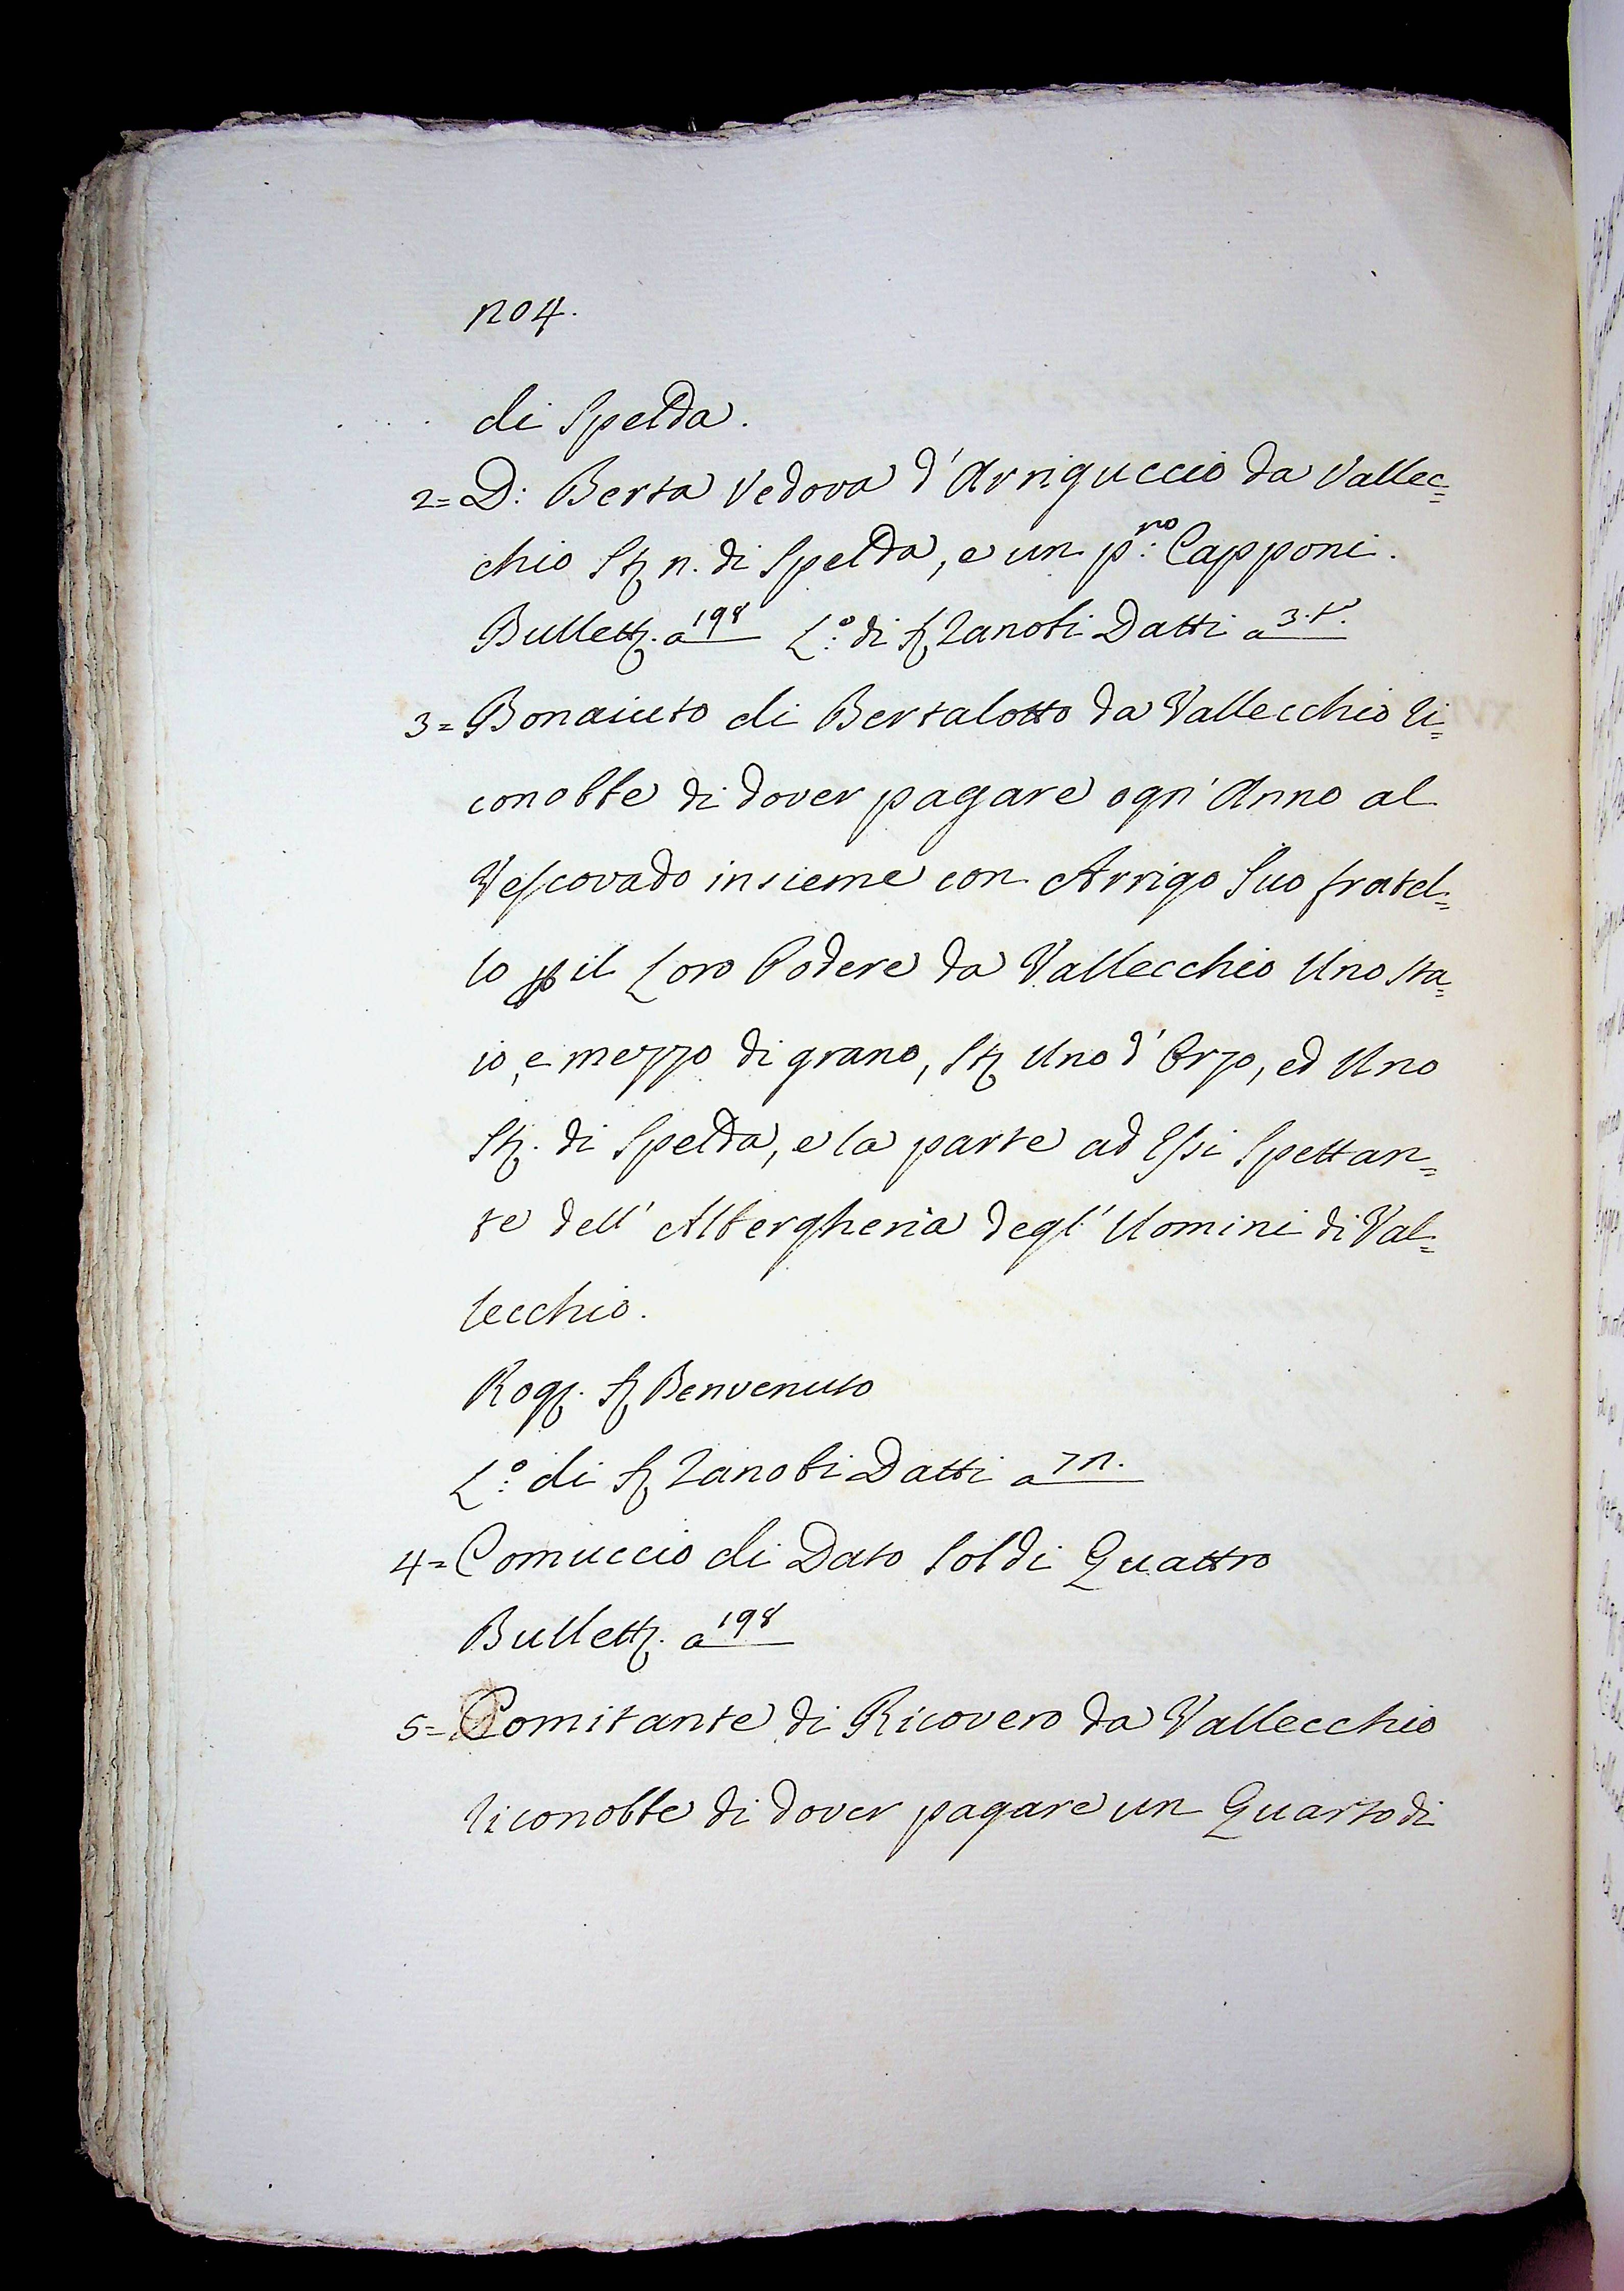 1204.
di Spelda.
2= D: Berta Vedova d'Arriguccio da Vallec=
chio St. n. di Spelda, e un p.ro Capponi.
Bullett. a 198 L.o di S. Zanobi Datti a 3.t.
3= Bonaiuto di Bertalotto da Vallecchio ri=
conobbe di dover pagare ogn'Anno al
Vescovado insieme con Arrigo Suo fratel=
lo p il Loro Podere da Vallecchio Uno Sta=
io, e mezzo di grano, St. Uno d'Orzo, ed Uno
St. di Spelda, e la parte ad Essi Spettan=
te dell'Albergheria degl'Uomini di Val=
lecchio.
Rog. S. Benvenuto
L.o di S. Zanobi Datti a 71.
4= Comuccio di Dato Soldi Quattro
Bullett. a 198
5= Comitante di Ricovero da Vallecchio
riconobbe di dover pagare un Quarto di